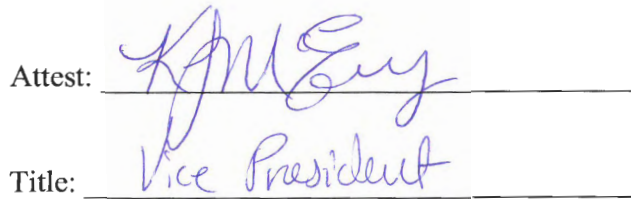 Attest:
Title: Vice President